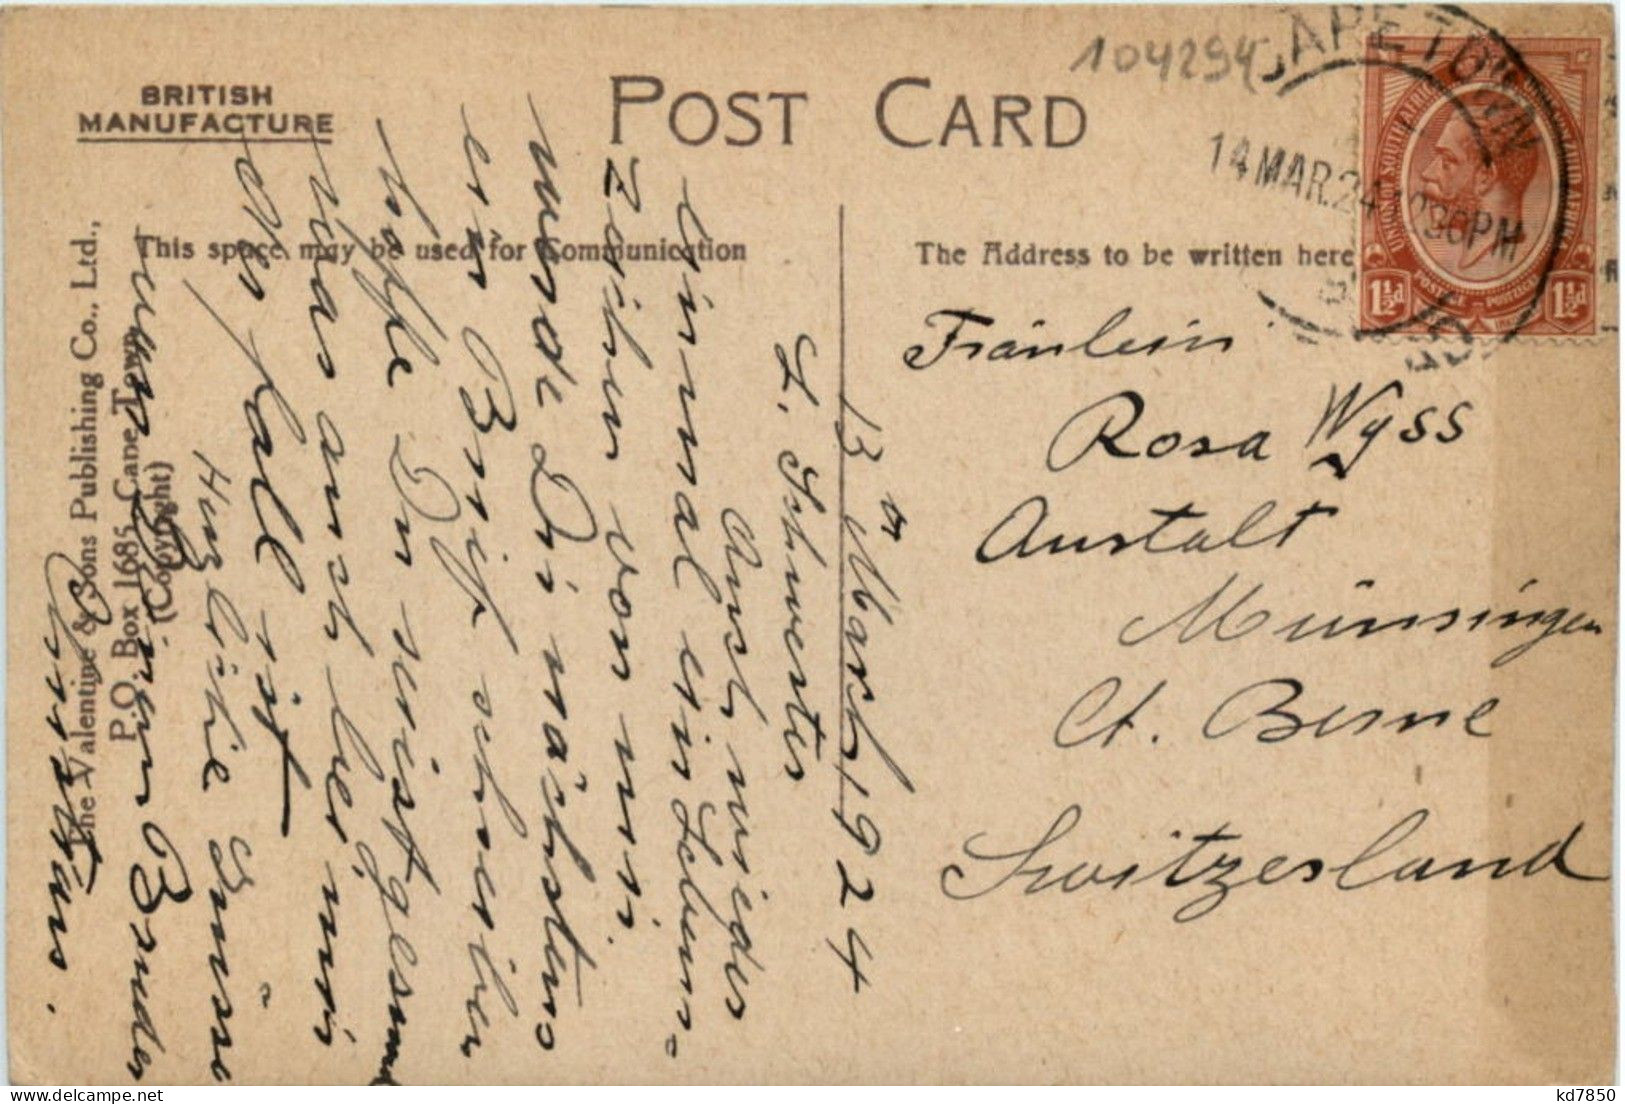 BRITISH
MANUFACTURE
POST CARD
104294
CAPE TOWN
14 MAR. 24
This space may be used for Communication
The Address to be written here
UNION OF SOUTH AFRICA
POSTAGE POSTZEGEL
1½d 1½d
Fräulein
Rosa Wyss
Anstalt
Münsingen
Ct. Berne
Switzerland
13 März 1924
L. Schwester
Auch wieder
einmal ein Lebens=
zeichen von mir.
Werde Dir nächstens
ein Brief schreiben
hoffe Du seist gesund
was auch bei mir
der Fall ist
Herzliche Grüsse
von Deinem Bruder
Christian.
The Valentine & Sons Publishing Co., Ltd.,
P.O. Box 1685, Cape Town
(Copyright)
kd7850